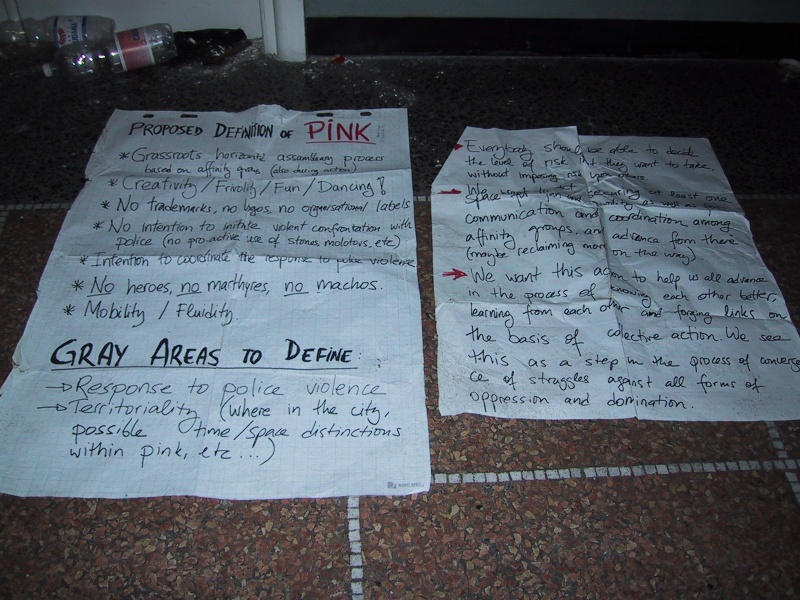 PROPOSED DEFINITION OF PINK
* Grassroots horizontal assembleary process
based on affinity groups (also during action)
* Creativity / Frivolity / Fun / Dancing!
* No trademarks, no logos, no organisational labels
* No intention to initiate violent confrontation with
police (no pro-active use of stones, molotovs, etc)
* Intention to coordinate the response to police violence
* No heroes, no marthyres, no machos.
* Mobility / Fluidity
GRAY AREAS TO DEFINE:
→ Response to police violence
→ Territoriality (where in the city,
possible time/space distinctions
within pink, etc...)
Everybody should be able to decide
the level of risk that they want to take,
without imposing risk upon others
We want securing at least one
space as well as
communication and coordination among
affinity groups, and advance from there
(maybe reclaiming more on the way)
We want this action to help us all advance
in the process of knowing each other better,
learning from each other and forging links on
the basis of colective action. We see
this as a step in the process of converge
ce of struggles against all forms of
oppression and domination.